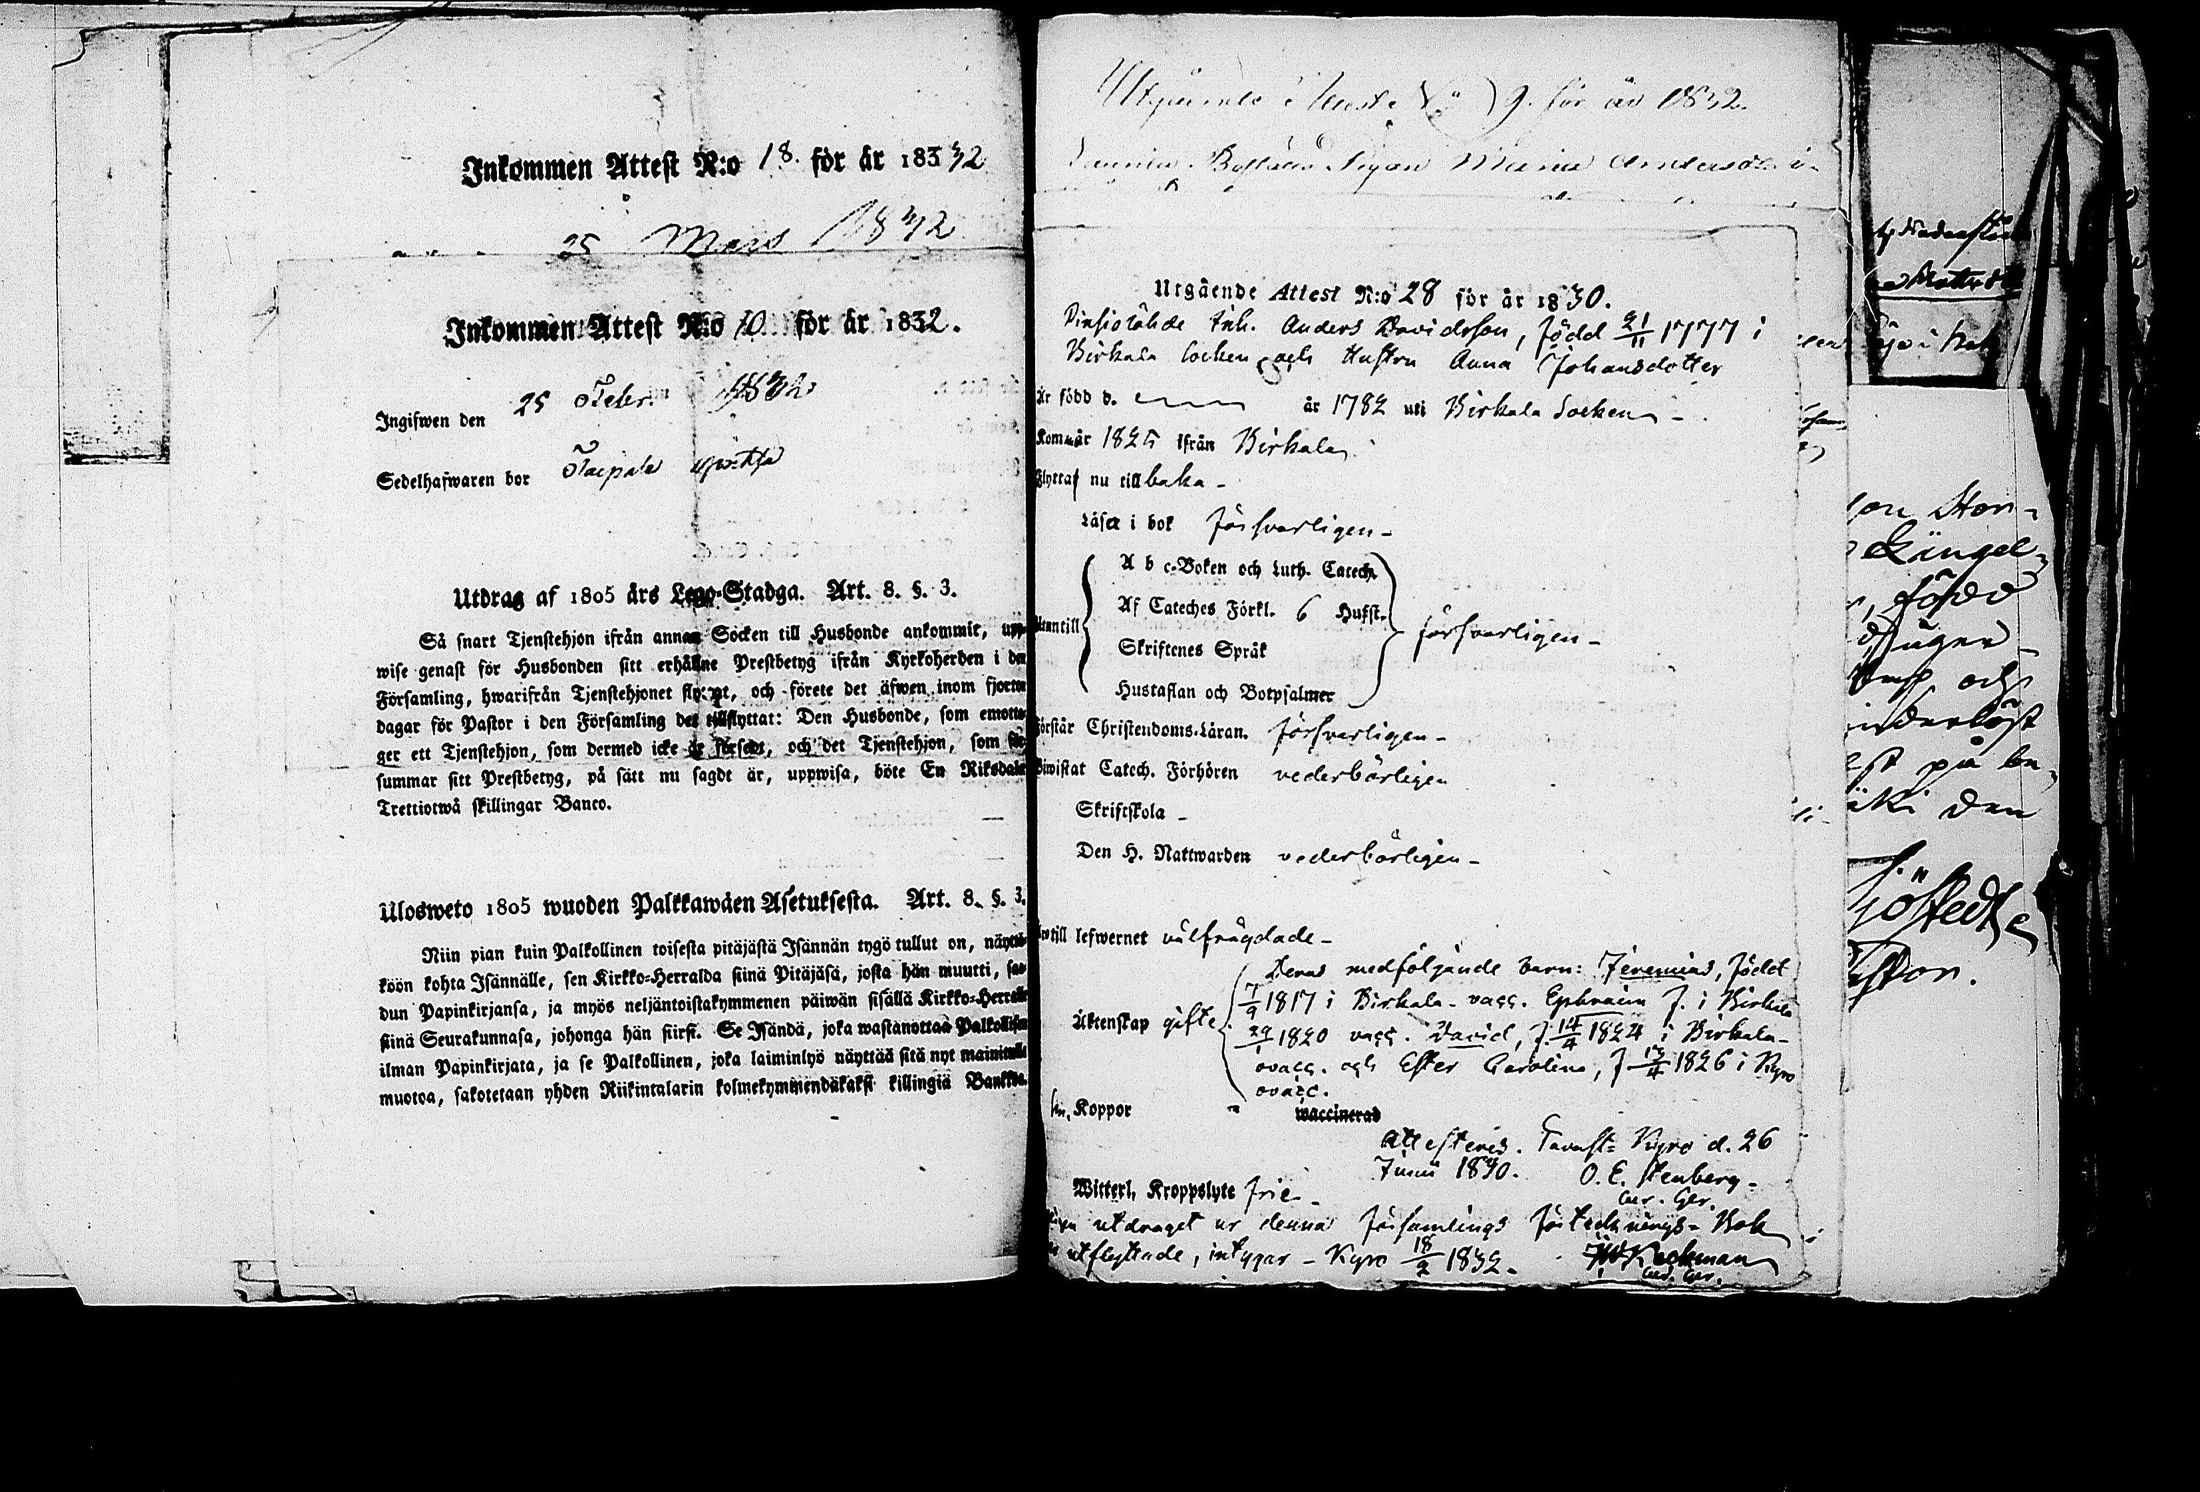 Inkommen Attest N:o 18. för år 1832
25 Mars 1832
Inkommen Attest N:o 10 för år 1832.
Ingifwen den 25 Febr. 1832
Sedelhafwaren bor Taipale
Utdrag af 1805 års Lego-Stadga. Art. 8. §. 3.
Så snart Tjenstehjon ifrån annan Socken till Husbonde ankommit, upp-
wise genast för Husbonden sitt erhållne Prestbetyg ifrån Kyrkoherden i den
Församling, hwarifrån Tjenstehjonet flyttat, och förete det äfwen inom fjorton
dagar för Pastor i den Församling det tillflyttat: Den Husbonde, som emotta-
ger ett Tjenstehjon, som dermed icke är försedt, och det Tjenstehjon, som för-
summar sitt Prestbetyg, på sätt nu sagdt är, uppwisa, böte En Riksdaler
Trettiotwå skillingar Banco.
Ulosweto 1805 wuoden Palkkawäen Asetuksesta. Art. 8. §. 3.
Niin pian kuin Palkollinen toisesta pitäjästä Isännän tygö tullut on, näyttä-
köön kohta Isännälle, sen Kirkko-Herralda siinä Pitäjäsä, josta hän muutti, saa-
dun Papinkirjansa, ja myös neljäntoistakymmenen päiwän sisällä Kirkko-Herralle
siinä Seurakunnasa, johonga hän siirsi. Se Isändä, joka wastanottaa Palkollisen
ilman Papinkirjata, ja se Palkollinen, joka laiminlyö näyttää sitä nyt mainitulla
muotoa, sakotetaan yhden Riikintalarin kolmekymmendäkaksi killingiä Bankkoa.
Utgående Attest N:o 9. för år 1832.
Maria Andersdr i
Utgående Attest N:o 28 för år 1830.
Inh. Anders Davidsson, född 21/11 1777 i
Birkala Socken och Hustru Anna Johansdotter
Är född d. år 1782 uti Birkala Socken -
Kom år 1825 ifrån Birkala
Flyttar nu tillbaka -
Läser i bok försvarligen -
A b c-Boken och Luth. Catech.
Af Cateches Förkl. 6 Hufst.
Utantill försvarligen -
Skriftenes Språk
Hustaflan och Botpsalmer
Förstår Christendoms-Läran. försvarligen -
Biwistat Catech. Förhören vederbörligen
Skriftskola -
Den H. Nattwarden vederbörligen -
till lefwernet välfrägdade -
Deras medföljande barn: Jeremias, född
7/9 1817 i Birkala - vacc. Ephraim f. i Birkala
Äktenskap gifte
29/1 1820 vacc. David, f. 14/4 1824 i Birkala -
ovacc. och Ester Carolina, f 13/4 1826 i Kyro
ovacc.
Koppor waccinerad
Attesteras. Tavast-Kyro d. 26
Junii 1830. O. E. Stenberg -
Witterl. Kroppslyte frie -
utdraget ur denna församlings förtecknings-Bok
utflyttade, intygar - Kyro 18/2 1832. -
född
och
på
den
Pastor.